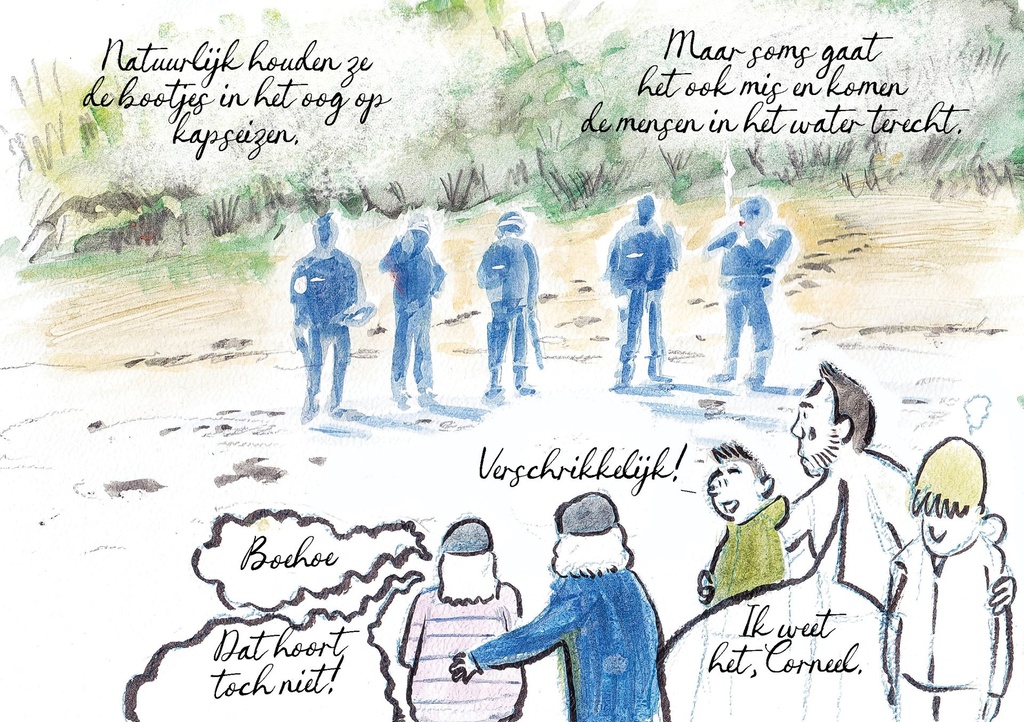 Natuurlijk houden ze
de bootjes in het oog op
kapseizen.
Maar soms gaat
het ook mis en komen
de mensen in het water terecht.
Verschrikkelijk!
Boehoe
Dat hoort
toch niet!
Ik weet
het, Corneel.